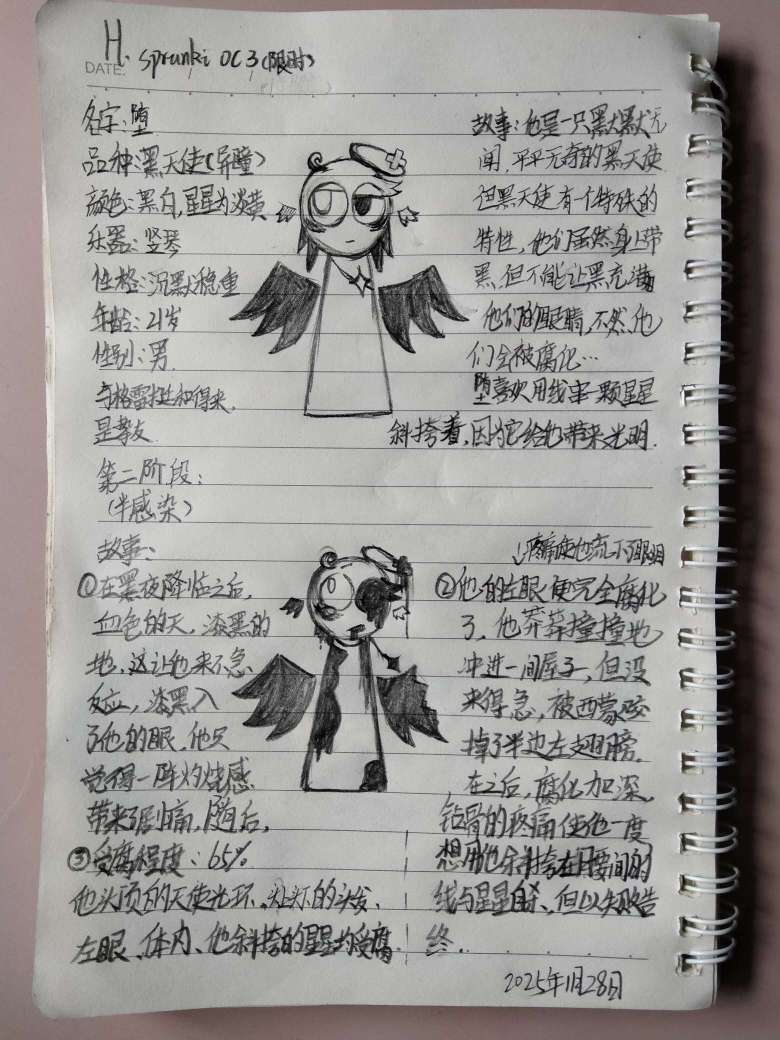 H. Sprunki OC3(限时)
DATE:
名字:堕
品种:黑天使(异瞳)
颜色:黑白,星星为淡黄
乐器:竖琴
性格:沉默稳重
年龄:21岁
性别:男
与格雷挺和得来,
是挚友
故事:他是一只默默无
闻,平平无奇的黑天使
但黑天使有一个特殊的
特性,他们虽然身上带
黑,但不能让黑充满
他们的眼睛,不然,他
们会被腐化…
堕喜欢用线串一颗星星
斜挎着,因为它给他带来光明.
第二阶段:
(半感染)
故事:
①在黑夜降临之后,
血色的天,漆黑的
地,这让他来不急
反应,漆黑入
了他的眼,他只
觉得一阵灼烧感
带来剧痛,随后,
↓疼痛使他流下了眼泪
②他的左眼便完全腐化
了,他莽莽撞撞地
冲进一间屋子,但没
来得急,被西蒙咬
掉了半边左翅膀.
在之后,腐化加深,
钻骨的疼痛使他一度
想用他斜挎在腰间的
线与星星自杀、但以失败告
终.
③受腐程度:65%
他头顶的天使光环、的头发、
左眼、体内、他斜挎的星星均受腐.
2025年11月28日